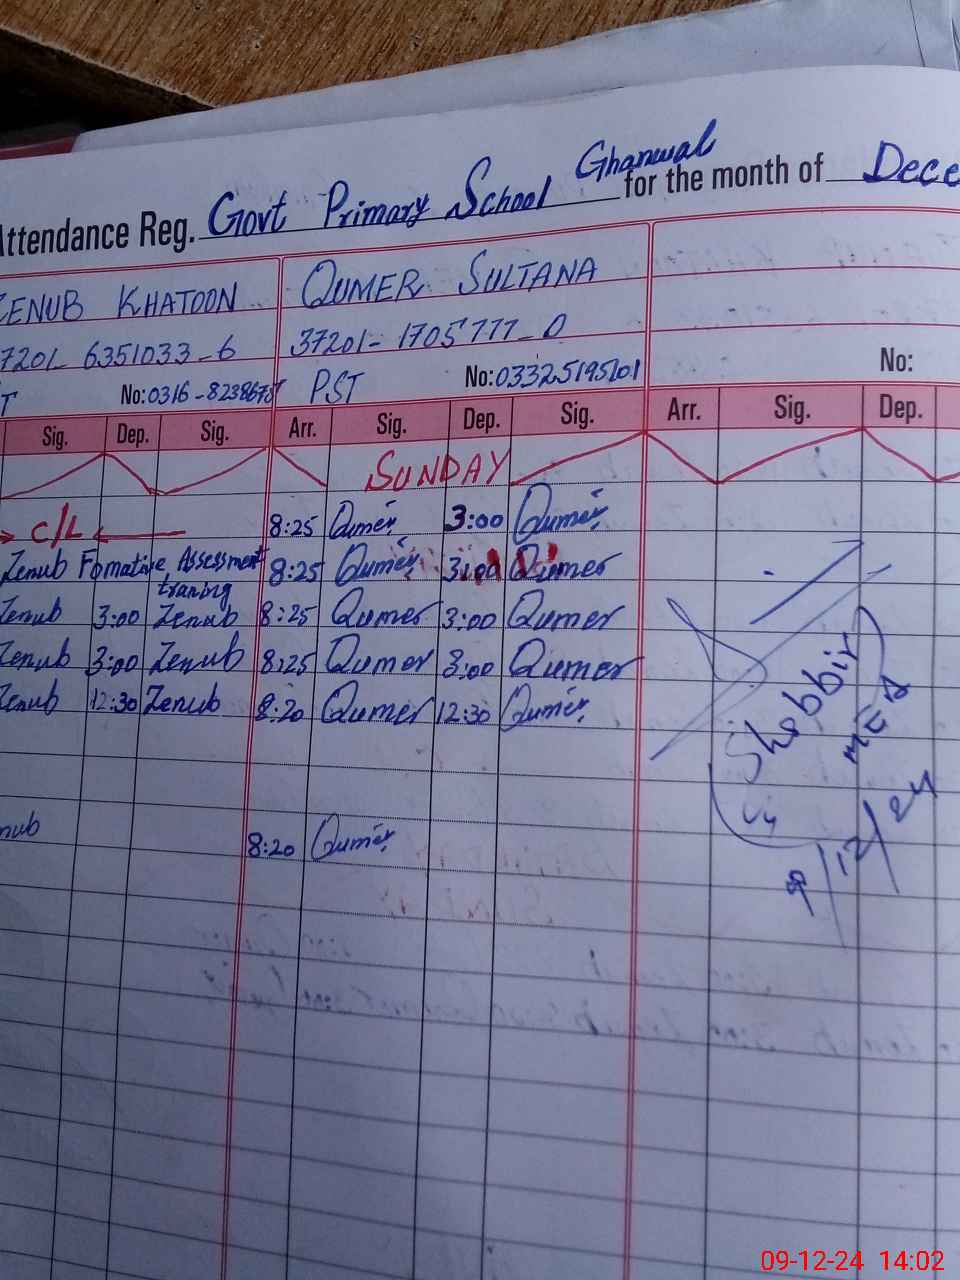 Attendance Reg. Govt Primary School Ghanwal for the month of Dece
ZENUB KHATOON QUMER SULTANA
7201-6351033-6 37201-1705777-0
T No:0316-823867 PST No:03325195101 No:
Sig. Dep. Sig. Arr. Sig. Dep. Sig. Arr. Sig. Dep.
SUNDAY
C/L 8:25 Qumer 3:00 Qumer
Zenub Fomative Assessment traning 8:25 Qumer 3:00 Qumer
Zenub 3:00 Zenub 8:25 Qumer 3:00 Qumer
Zenub 3:00 Zenub 8:25 Qumer 3:00 Qumer
Zenub 12:30 Zenub 8:20 Qumer 12:30 Qumer
nub 8:20 Qumer
Shabbir
MEA
9/12/24
09-12-24 14:02